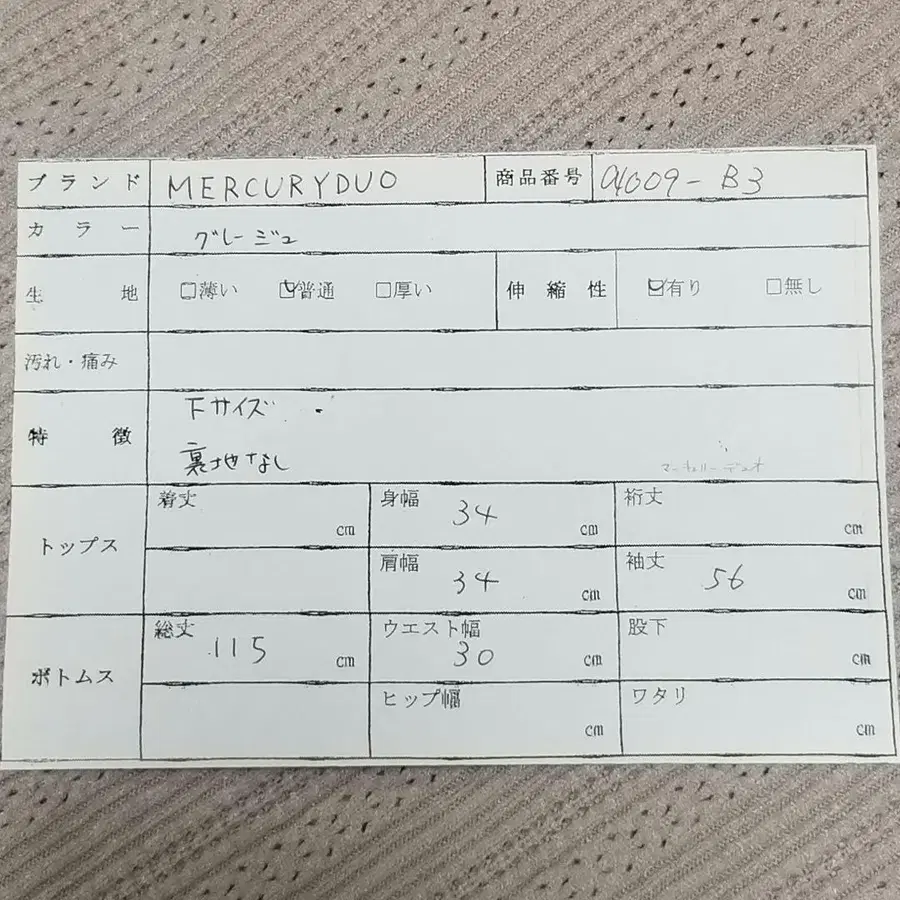 ブランド MERCURYDUO 商品番号 a1009-B3
カラー グレージュ
生地 □薄い ☑普通 □厚い 伸縮性 ☑有り □無し
汚れ・痛み
特徴 下サイズ
裏地なし
マーキュリーデュオ
トップス 着丈 cm 身幅 34 cm 裄丈 cm
肩幅 34 cm 袖丈 56 cm
ボトムス 総丈 115 cm ウエスト幅 30 cm 股下 cm
ヒップ幅 cm ワタリ cm